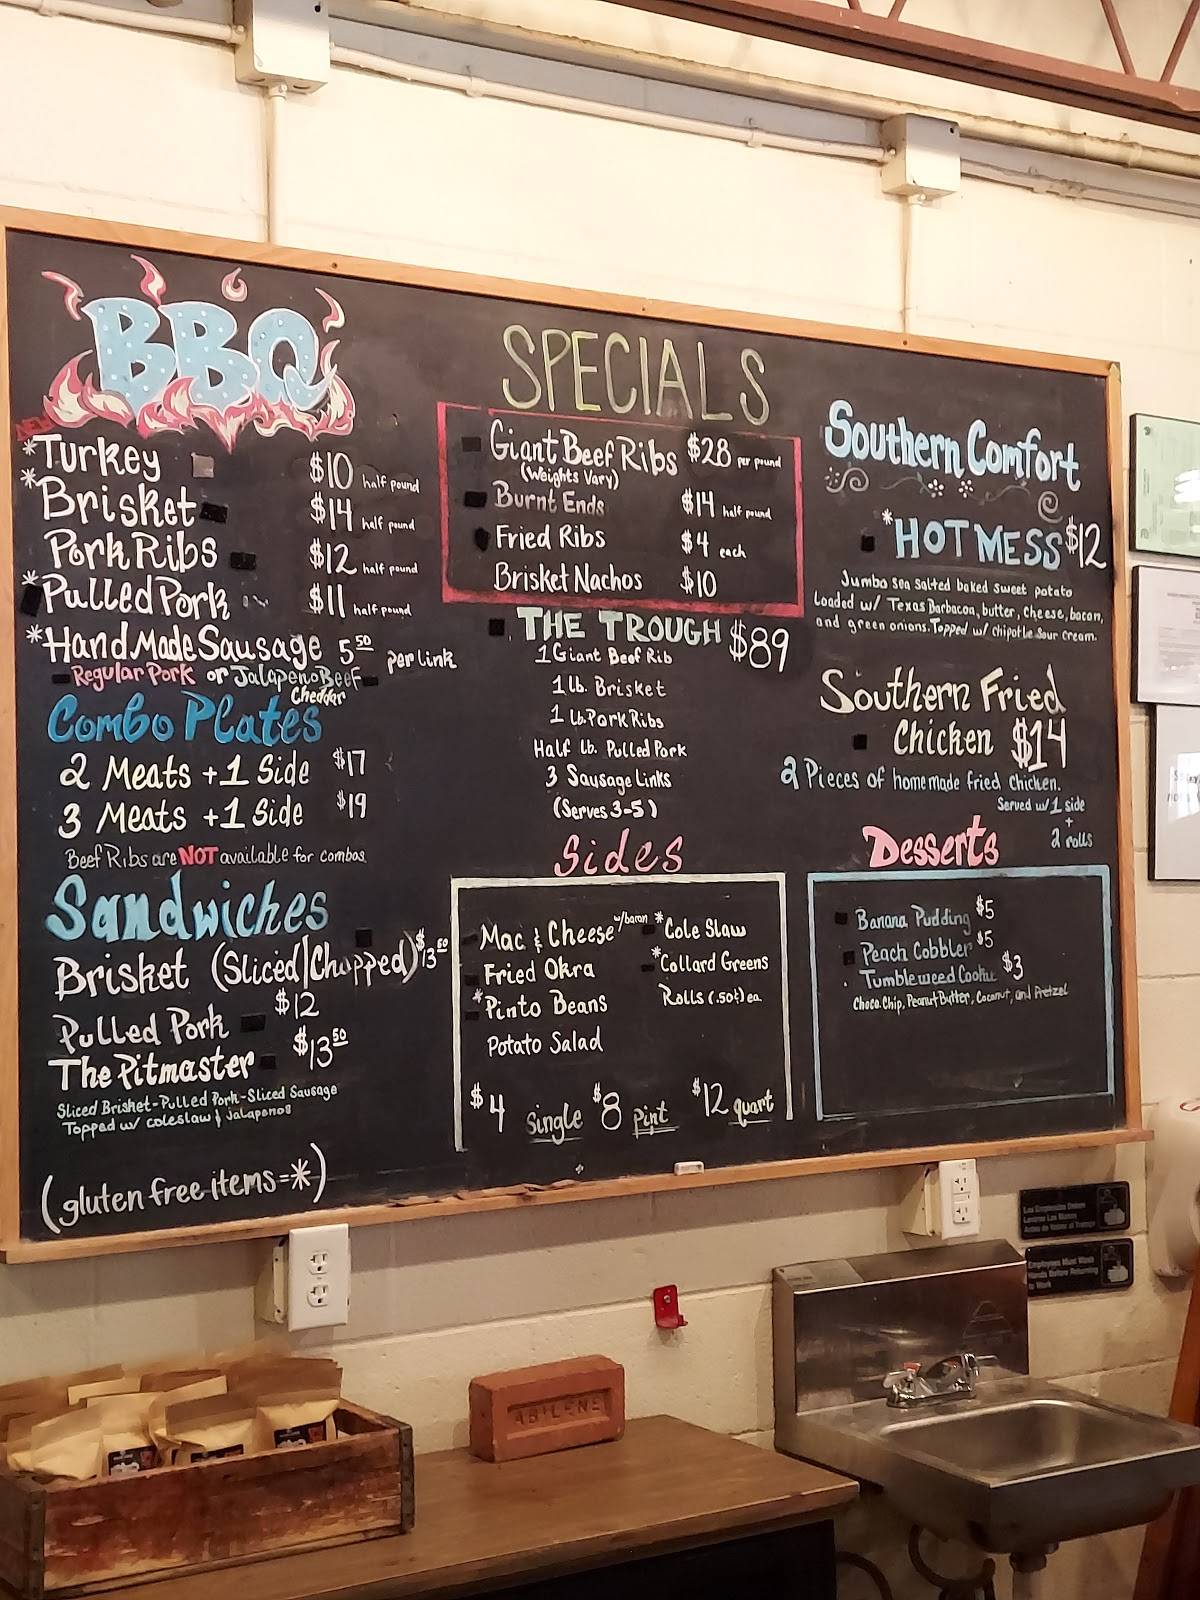 BBQ
NEW
*Turkey $10 half pound
*Brisket $14 half pound
Pork Ribs $12 half pound
*Pulled Pork $11 half pound
*Hand Made Sausage 5.50 per link
Regular Pork or Jalapeno Beef
Cheddar
Combo Plates
2 Meats +1 Side $17
3 Meats +1 Side $19
Beef Ribs are NOT available for combos
Sandwiches
Brisket (Sliced/Chopped) $13.50
Pulled Pork $12
The Pitmaster $13.50
Sliced Brisket-Pulled Pork-Sliced Sausage
Topped w/ coleslaw & jalapenos
(gluten free items=*)
SPECIALS
Giant Beef Ribs $28 per pound
(Weights Vary)
Burnt Ends $14 half pound
Fried Ribs $4 each
Brisket Nachos $10
THE TROUGH $89
1 Giant Beef Rib
1 lb. Brisket
1 lb. Pork Ribs
Half lb. Pulled Pork
3 Sausage Links
(Serves 3-5)
Sides
Mac & Cheese w/bacon
Fried Okra
*Pinto Beans
Potato Salad
*Cole Slaw
*Collard Greens
Rolls (.50¢) ea.
$4 Single $8 pint $12 quart
Southern Comfort
*HOT MESS $12
Jumbo sea salted baked sweet potato
Loaded w/ Texas Barbacoa, butter, cheese, bacon,
and green onions. Topped w/ chipotle sour cream.
Southern Fried
Chicken $14
2 Pieces of homemade fried chicken.
Served w/ 1 side
+
2 rolls
Desserts
Banana Pudding $5
Peach Cobbler $5
Tumbleweed Cookie $3
Choco.Chip, Peanut Butter, Coconut, and Pretzel
Los Empleados Deben
Lavarse Las Manos
Antes de Volver al Trabajo
Employees Must Wash
Hands Before Returning
to Work
ABILENE